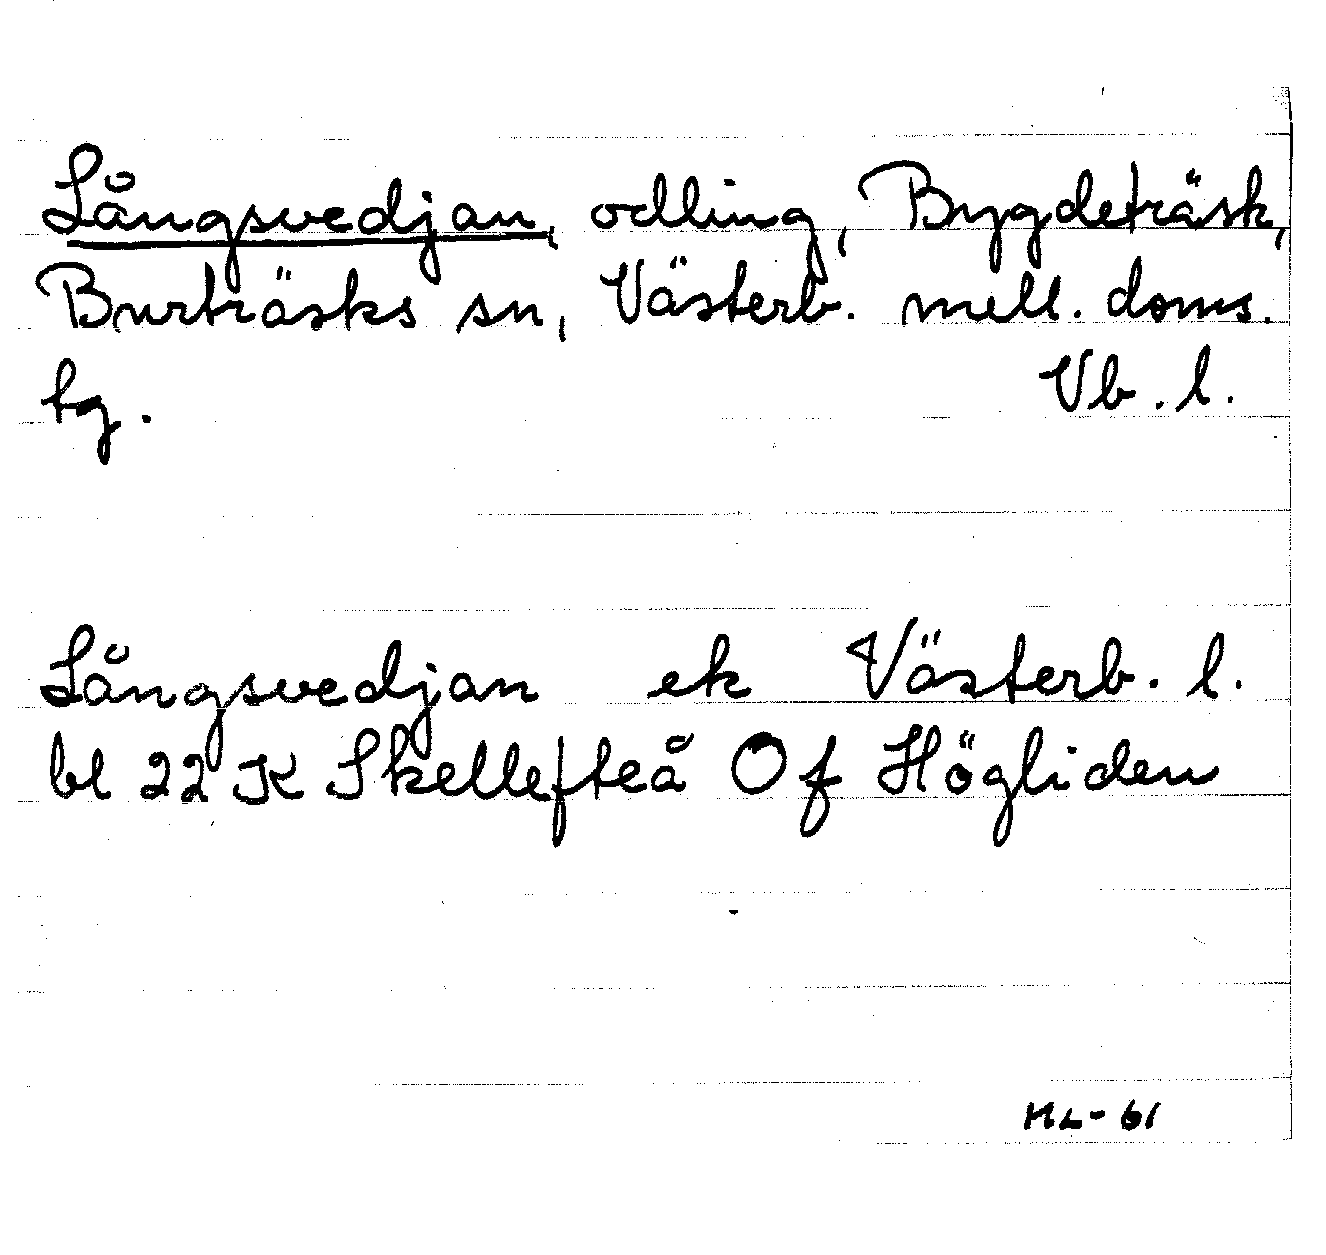 Långsvedjan, odling, Bygdeträsk,
Burträsks sn, Västerb. mell. doms.
tg. Vb. l.
Långsvedjan ek Västerb. l.
bl 22 K Skellefteå Of Högliden
ML-61